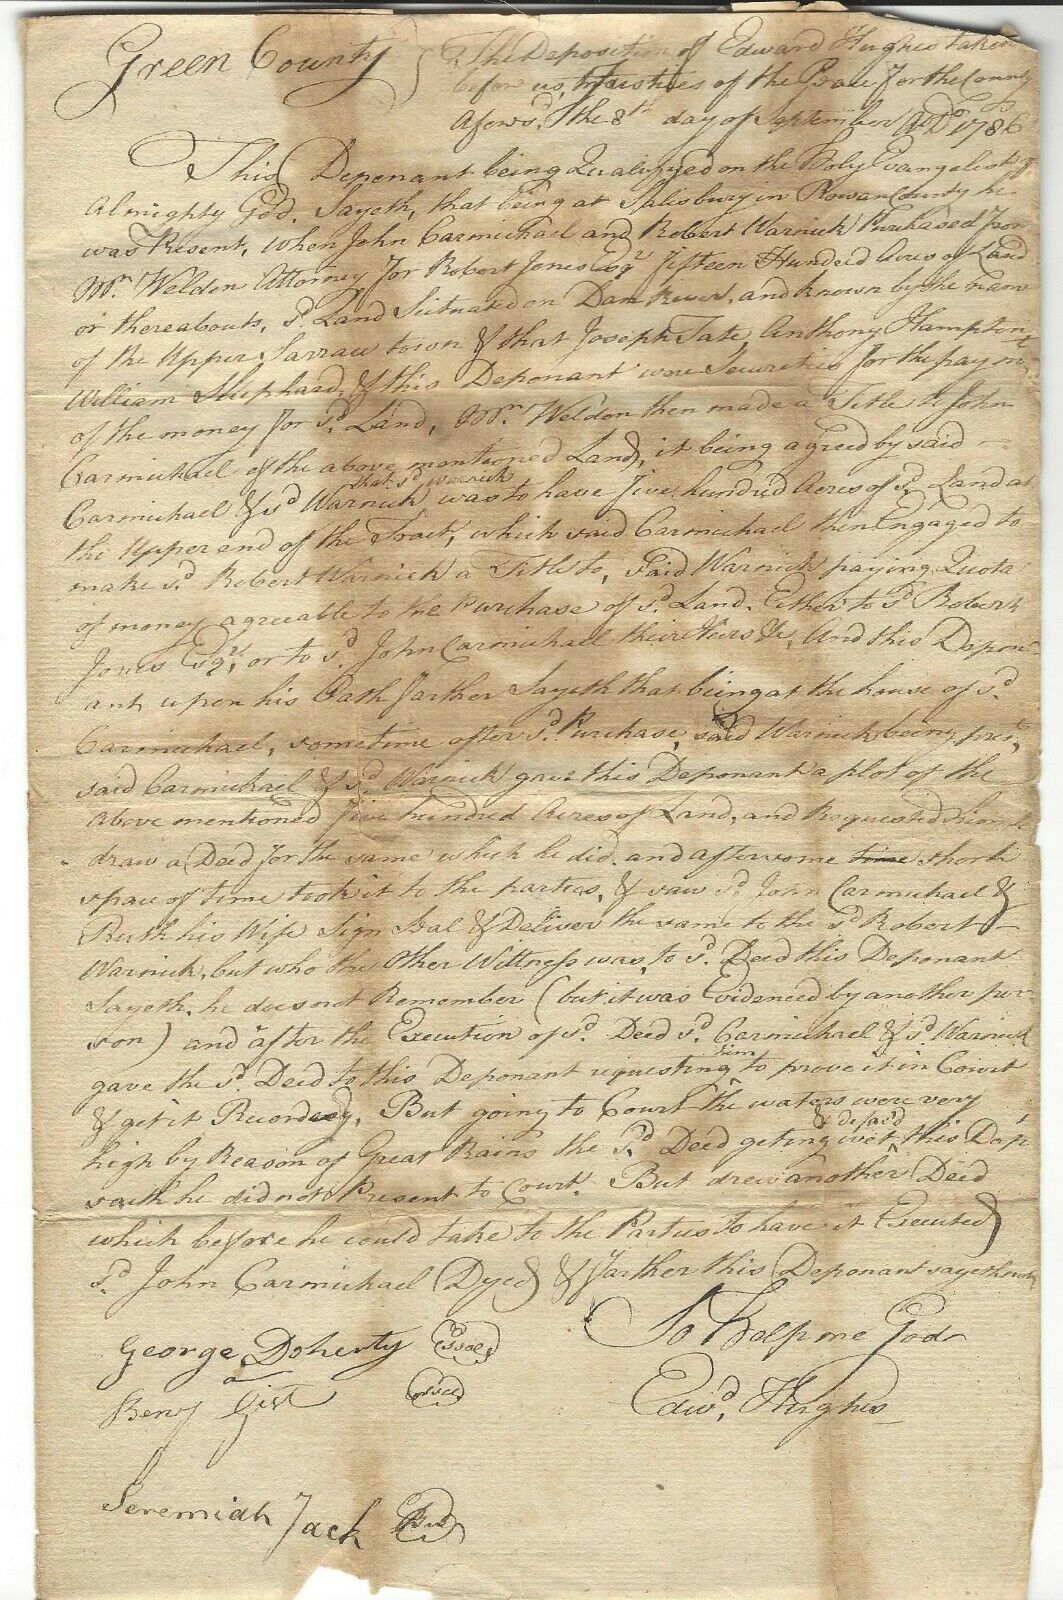 Green County } The Deposition of Edward Hughes taken
before us, Justices of the Peace for the County
Afores.d the 8th day of September AD 1786
This Deponant being Qualifyed on the Holy Evangelist of
Almighty God. Sayeth, that being at Salisbury in Rowan County he
was Present, when John Carmichael and Robert Warnick Purchased from
Mr. Weldon Attorney for Robert Jones Esqr. fifteen Hundred Acres of Land
or thereabouts, sd. Land Situated on Dan River, and known by the name
of the Upper Sarraw town & that Joseph Tate, Anthony Hampton
William Shephard, & this Deponant were Securities for the paymt.
of the money for sd. Land, Mr. Weldon then made a Title to John
Carmichael of the above mentioned Land, it being agreed by said
Carmichael & sd Warnick that sd. Warnick was to have five hundred Acres of sd. Land at
the Upper end of the Tract, which said Carmichael then Engaged to
make sd. Robert Warnick a Title to, Said Warnick paying Quota
of money agreeable to the Purchase of sd. Land. Either to sd. Robert
Jones Esqr, or to sd. John Carmichael their Heirs &c, And this Depon=
ant upon his Oath farther Sayeth that being at the house of sd.
Carmichael, sometime after sd. Purchase, said Warnick being prest,
said Carmichael & sd. Warnick gave this Deponant a plot of the
above mentioned five hundred Acres of Land, and Requested him to
draw a Deed for the same which he did, and after some time short
space of time took it to the parties, & saw sd. John Carmichael &
Ruth his Wife Sign Seal & Deliver the same to the sd. Robert
Warnick, but who the Other Wittness was, to sd. Deed this Deponant
Sayeth, he does not Remember (but it was Evidenced by another per-
son) and after the Execution of sd. Deed sd. Carmichael & sd. Warnick
gave the sd. Deed to this Deponant requesting him to prove it in Court
& get it Recorded, But going to Court the waters were very
high by Reason of Great Rains the sd. Deed geting wet & defac'd this Dept.
saith he did not Present to Court. But drew another Deed
which before he could take to the Parties to have it Executed
sd. John Carmichael Dyed & farther this Deponant sayeth not
So Help me God
George Doherty
Edwd. Hughes
Benj Gist
Jeremiah Jack